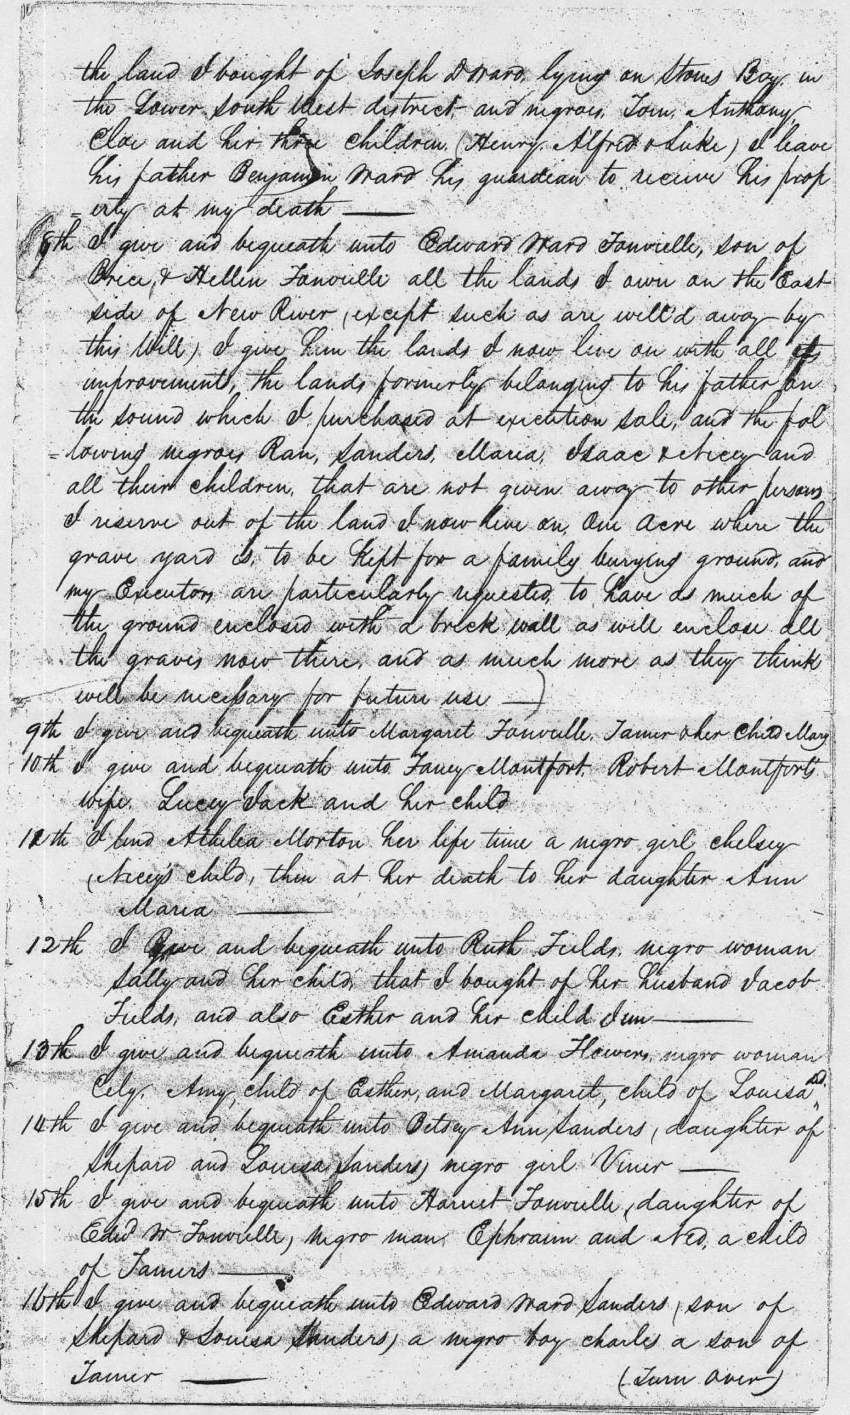 the land I bought of Joseph D Ward, lying on Stones Bay, in
the Lower South West district, and negroes, Tom, Anthony,
Cloe and her three children, (Henry, Alfred & Luke) I leave
his father Benjamin Ward his guardean to receive his prop
=erty at my death
8th I give and bequeath unto Edward Ward Fonvielle, son of
Brice, & Hellen Fonvielle all the lands I own on the East
side of New River, (except such as are will'd away by
this Will) I give him the lands I now live on with all its
improvements, the lands formerly belonging to his father on
the sound which I purchased at execution sale, and the fol
=lowing negroes, Ran, Sanders, Maria, Isaac & Nicey and
all their children, that are not given away to other persons
I reserve out of the land I now live on, One Acre where the
grave yard is, to be kept for a family burying ground, and
my Executors are particularly requested, to have as much of
the ground enclosed with a brick wall as will enclose all
the graves now there, and as much more as they think
will be necessary for future use
9th I give and bequeath unto Margaret Fonvielle, Tamer & her Child Mary
10th I give and bequeath unto Fancy Montfort, Robert Montforts
wife, Lucey Jack and her child
11th I lend Athelia Morton her life time a negro girl chelsey
(Nicey's child, then at her death to her daughter Ann
Maria
12th I Give and bequeath unto Ruth Fields, negro woman
Sally and her child, that I bought of her husband Jacob
Fields, and also Esther and her child Jim
13th I give and bequeath unto Amanda Flowers, negro woman
Cely, Amy, child of Esther, and Margaret, child of Louisa
14th I give and bequeath unto Betsey Ann Sanders, (daughter of
Shepard and Louisa Sanders) negro girl Viner
15th I give and bequeath unto Harriet Fonvielle, (daughter of
Edwd W Fonvielle) negro man, Ephraim and Ned, a child
of Tamers
16th I give and bequeath unto Edward Ward Sanders (son of
Shepard & Louisa Sanders) a negro boy charles a son of
Tamer
(Turn Over)